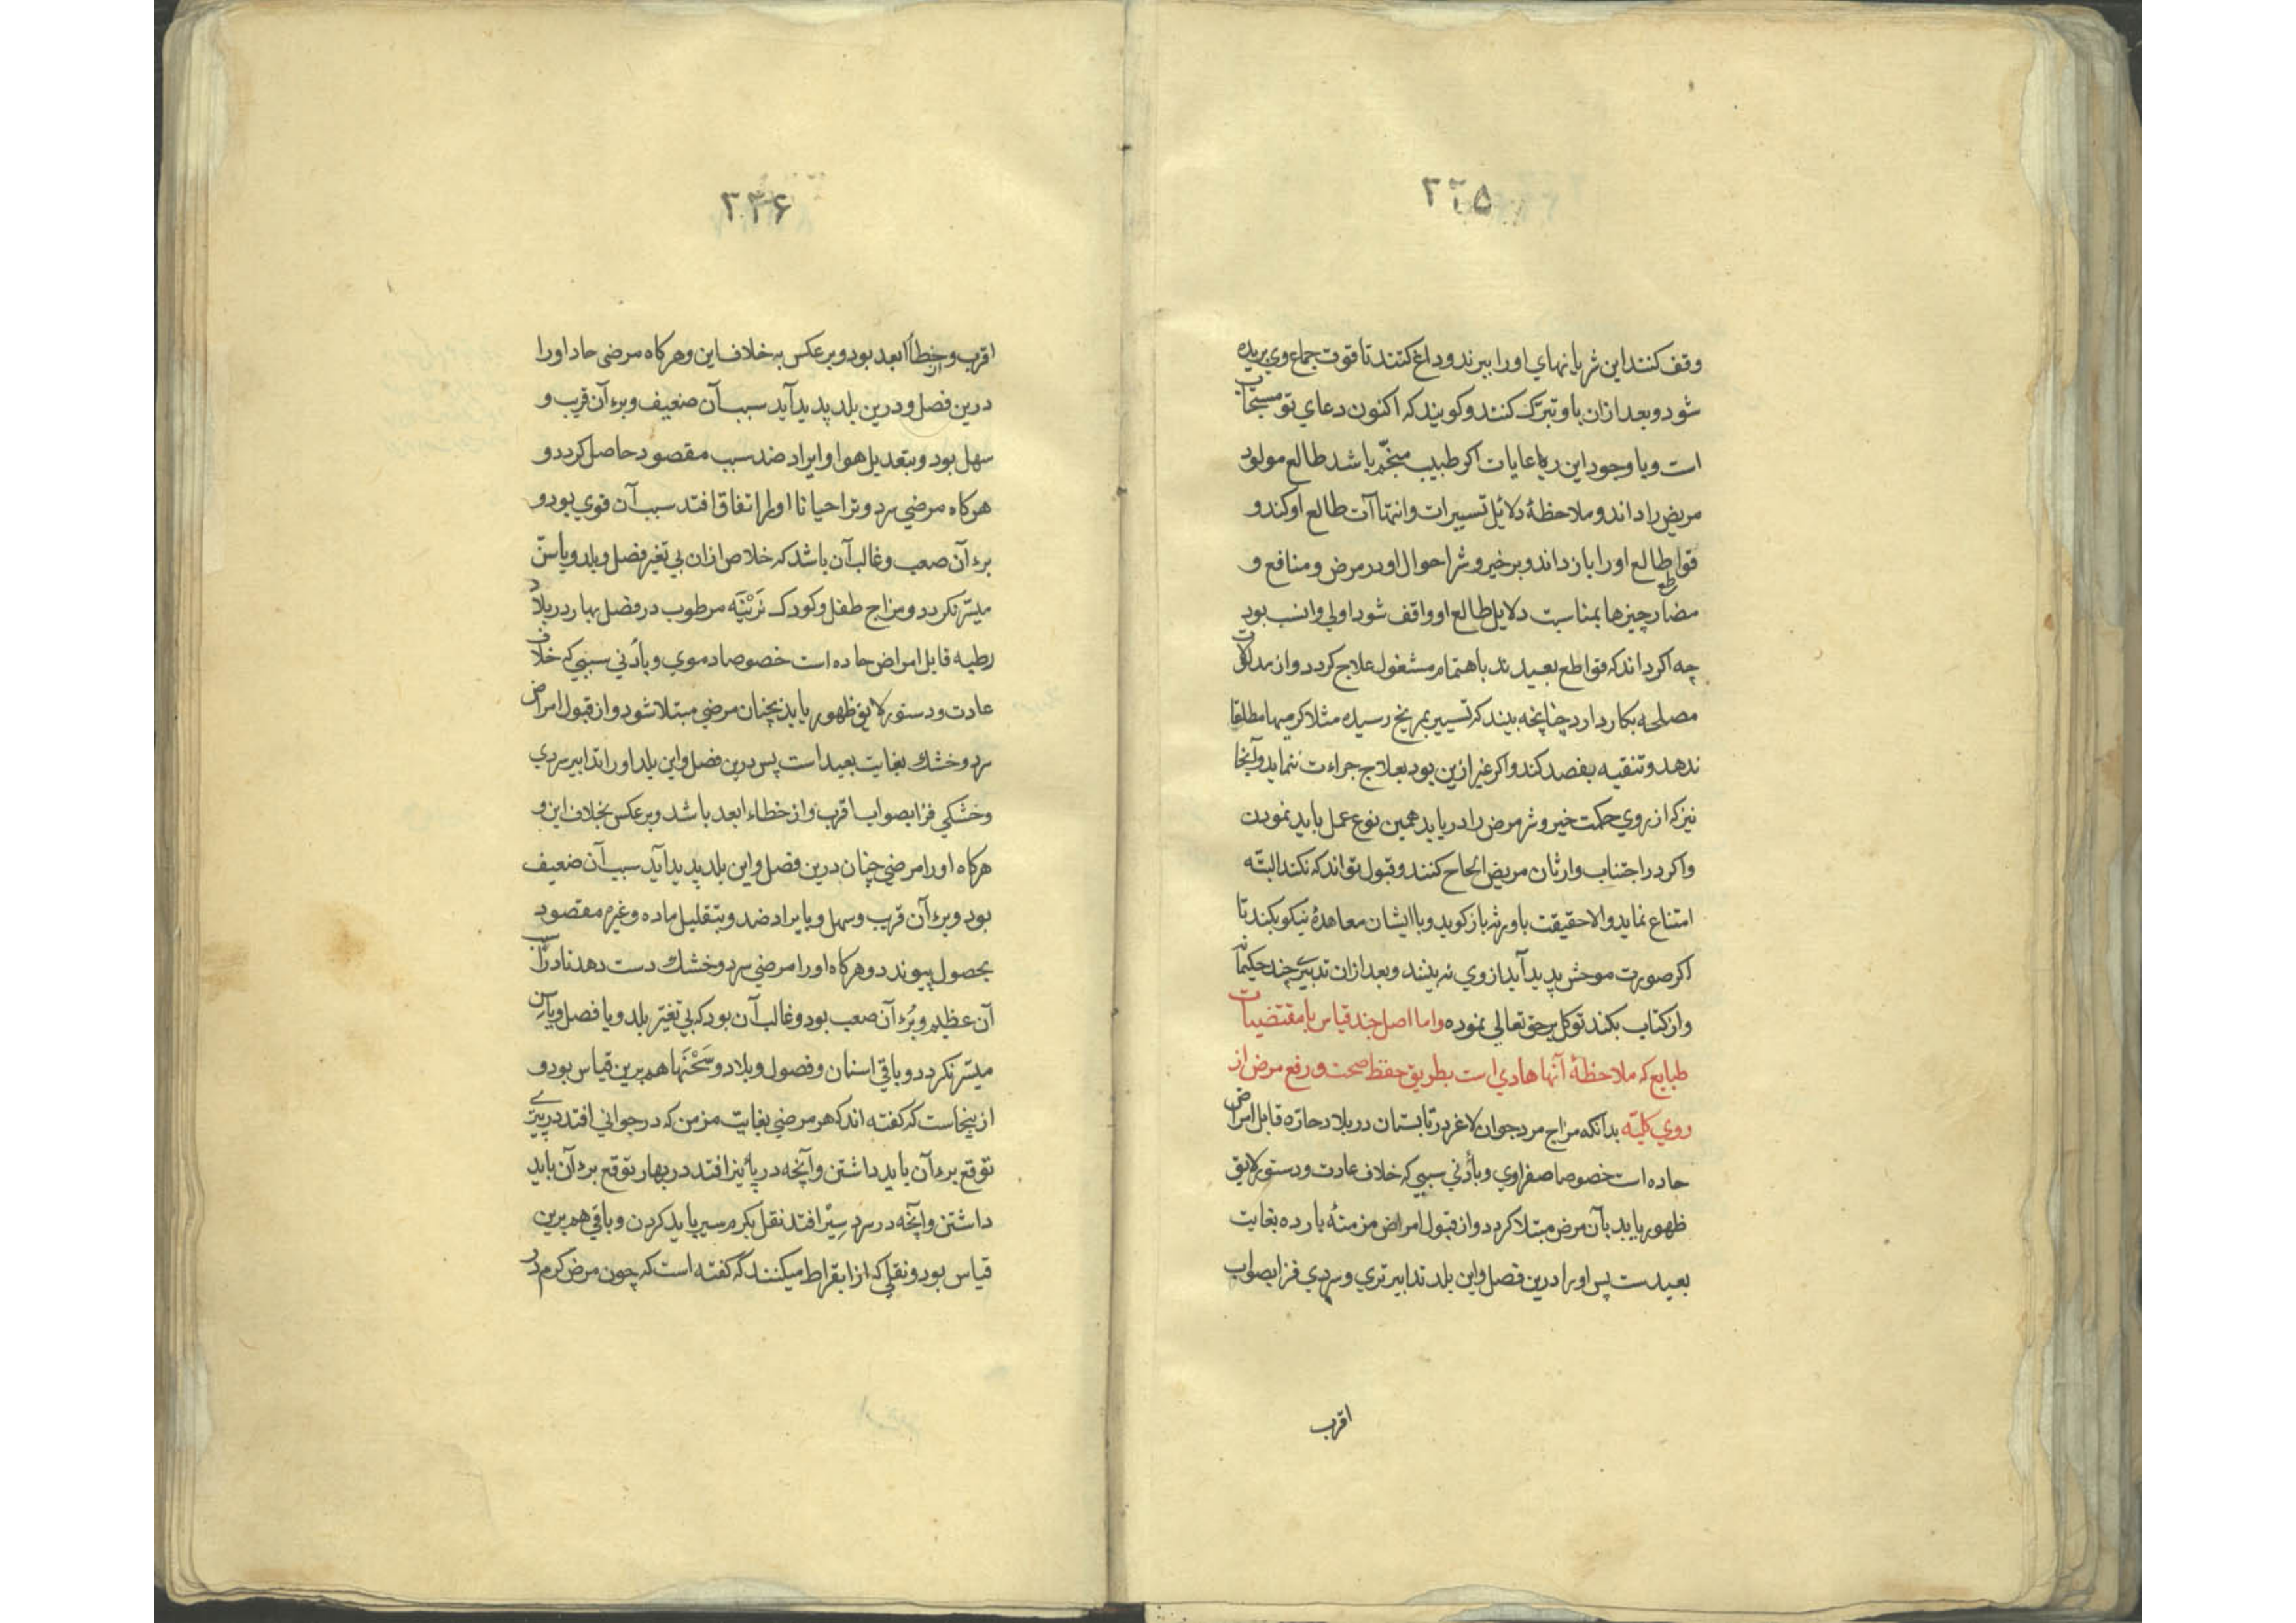 ۲۲۵
وقف کنند این شریانهای اورا ببرند و داغ کنند تا قوت جماع وی بریده
شود و بعد ازان باو تبرّک کنند و کویند که اکنون دعای تو مستجاب
است و با وجود این رعایات اکر طبیب منجّم باشد طالع مولود
مریض را داند و ملاحظهٔ دلائل تسییرات و انتهاآت طالع او کند و
قواطع طالع اورا باز داند و بر خیر و شر احوال او در مرض و منافع و
مضار چیزها بمناسبت دلایل طالع او واقف شود اولی و انسب بود
چه اکر داند که قواطع بعیدند باهتمام مشغول علاج کردد و از مدلولات
مصلحه بکار دارد چنانچه بیند که تسییر بمریخ رسیده مثلا کرمیها مطلقا
ندهد و تنقیه بفصد کند و اکر غیر ازین بود بعلاج جراءت ننماید و آنجا
نیز که از روی حکمت خیر و شر مرض را دریابد همین نوع عمل باید نمودن
و اکر در اجتناب وارثان مریض الحاح کنند و قبول تواند که نکند البتّه
امتناع نماید والا حقیقت باورثه باز کوید و با ایشان معاهدهٔ نیکو بکند تا
اکر صورت موحش پدید آید از وی نه بینند و بعد ازان تدبیری چند حکیمانه
و از کتاب بکند توکل برحق تعالی نموده واما اصل چند قیاس با مقتضیات
طبایع که ملاحظهٔ آنها هادی است بطریق حفظ صحت و رفع مرض از
روی کلیّه بدانکه مزاج مرد جوان لاغر در تابستان در بلاد حارّه قابل امراض
حاده است خصوصا صفراوی و بأدنی سببی که خلاف عادت و دستور لایق
ظهور یابد بآن مرض مبتلا کردد و از قبول امراض مزمنهٔ بارده بغایت
بعیدست پس اورا درین فصل و این بلد تدابیر تری و سردی فزا بصواب
اقرب
۲۲۶
اقرب و از خطأ ابعد بود و بر عکس به خلاف این و هرکاه مرضی حاد اورا
درین فصل و درین بلد پدید آید سبب آن ضعیف و برء آن قریب و
سهل بود و بتعدیل هوا و ایراد ضد سبب مقصود حاصل کردد و
هرکاه مرضی سرد و تر احیانا اورا اتفاق افتد سبب آن قوی بود و
برء آن صعب و غالب آن باشد که خلاص ازان بی تغیر فصل و بلد و یا سنّ
میسّر نکردد و مزاج طفل و کودک نَرْبَنَه مرطوب در فصل بهار در بلاد
رطبه قابل امراض حاده است خصوصا دموی و بأدنی سببی که خلاف
عادت و دستور لایق ظهور یابد بچنان مرضی مبتلا شود و از قبول امراض
سرد و خشک بغایت بعید است پس درین فصل و این بلد اورا تدابیر سردی
و خشکی فزا بصواب اقرب و از خطاء ابعد باشد و بر عکس بخلاف این و
هرکاه اورا مرضی چنان درین فصل و این بلد پدید آید سبب آن ضعیف
بود و برء آن قریب و سهل و بایراد ضد و بتقلیل ماده و غیرم مقصود
بحصول پیوندد و هرکاه اورا مرضی سرد و خشک دست دهد نادرا سبب
آن عظیم و بُرء آن صعب بود و غالب آن بود که بی تغیّر بلد و یا فصل و یا سن
میسّر نکردد و باقی اسنان و فصول و بلاد و سَحْنَها هم برین قیاس بود و
ازینجاست که کفته اند که هر مرضی بغایت مزمن که در جوانی افتد در پیری
توقع برء آن باید داشتن و آنچه در پائیز افتد در بهار توقع برء آن باید
داشتن و آنچه در سرد سِیْر افتد نقل بکرم سیر باید کردن و باقی هم برین
قیاس بود و نقلی که از ابقراط میکنند که کفته است که چون مرض کرم در